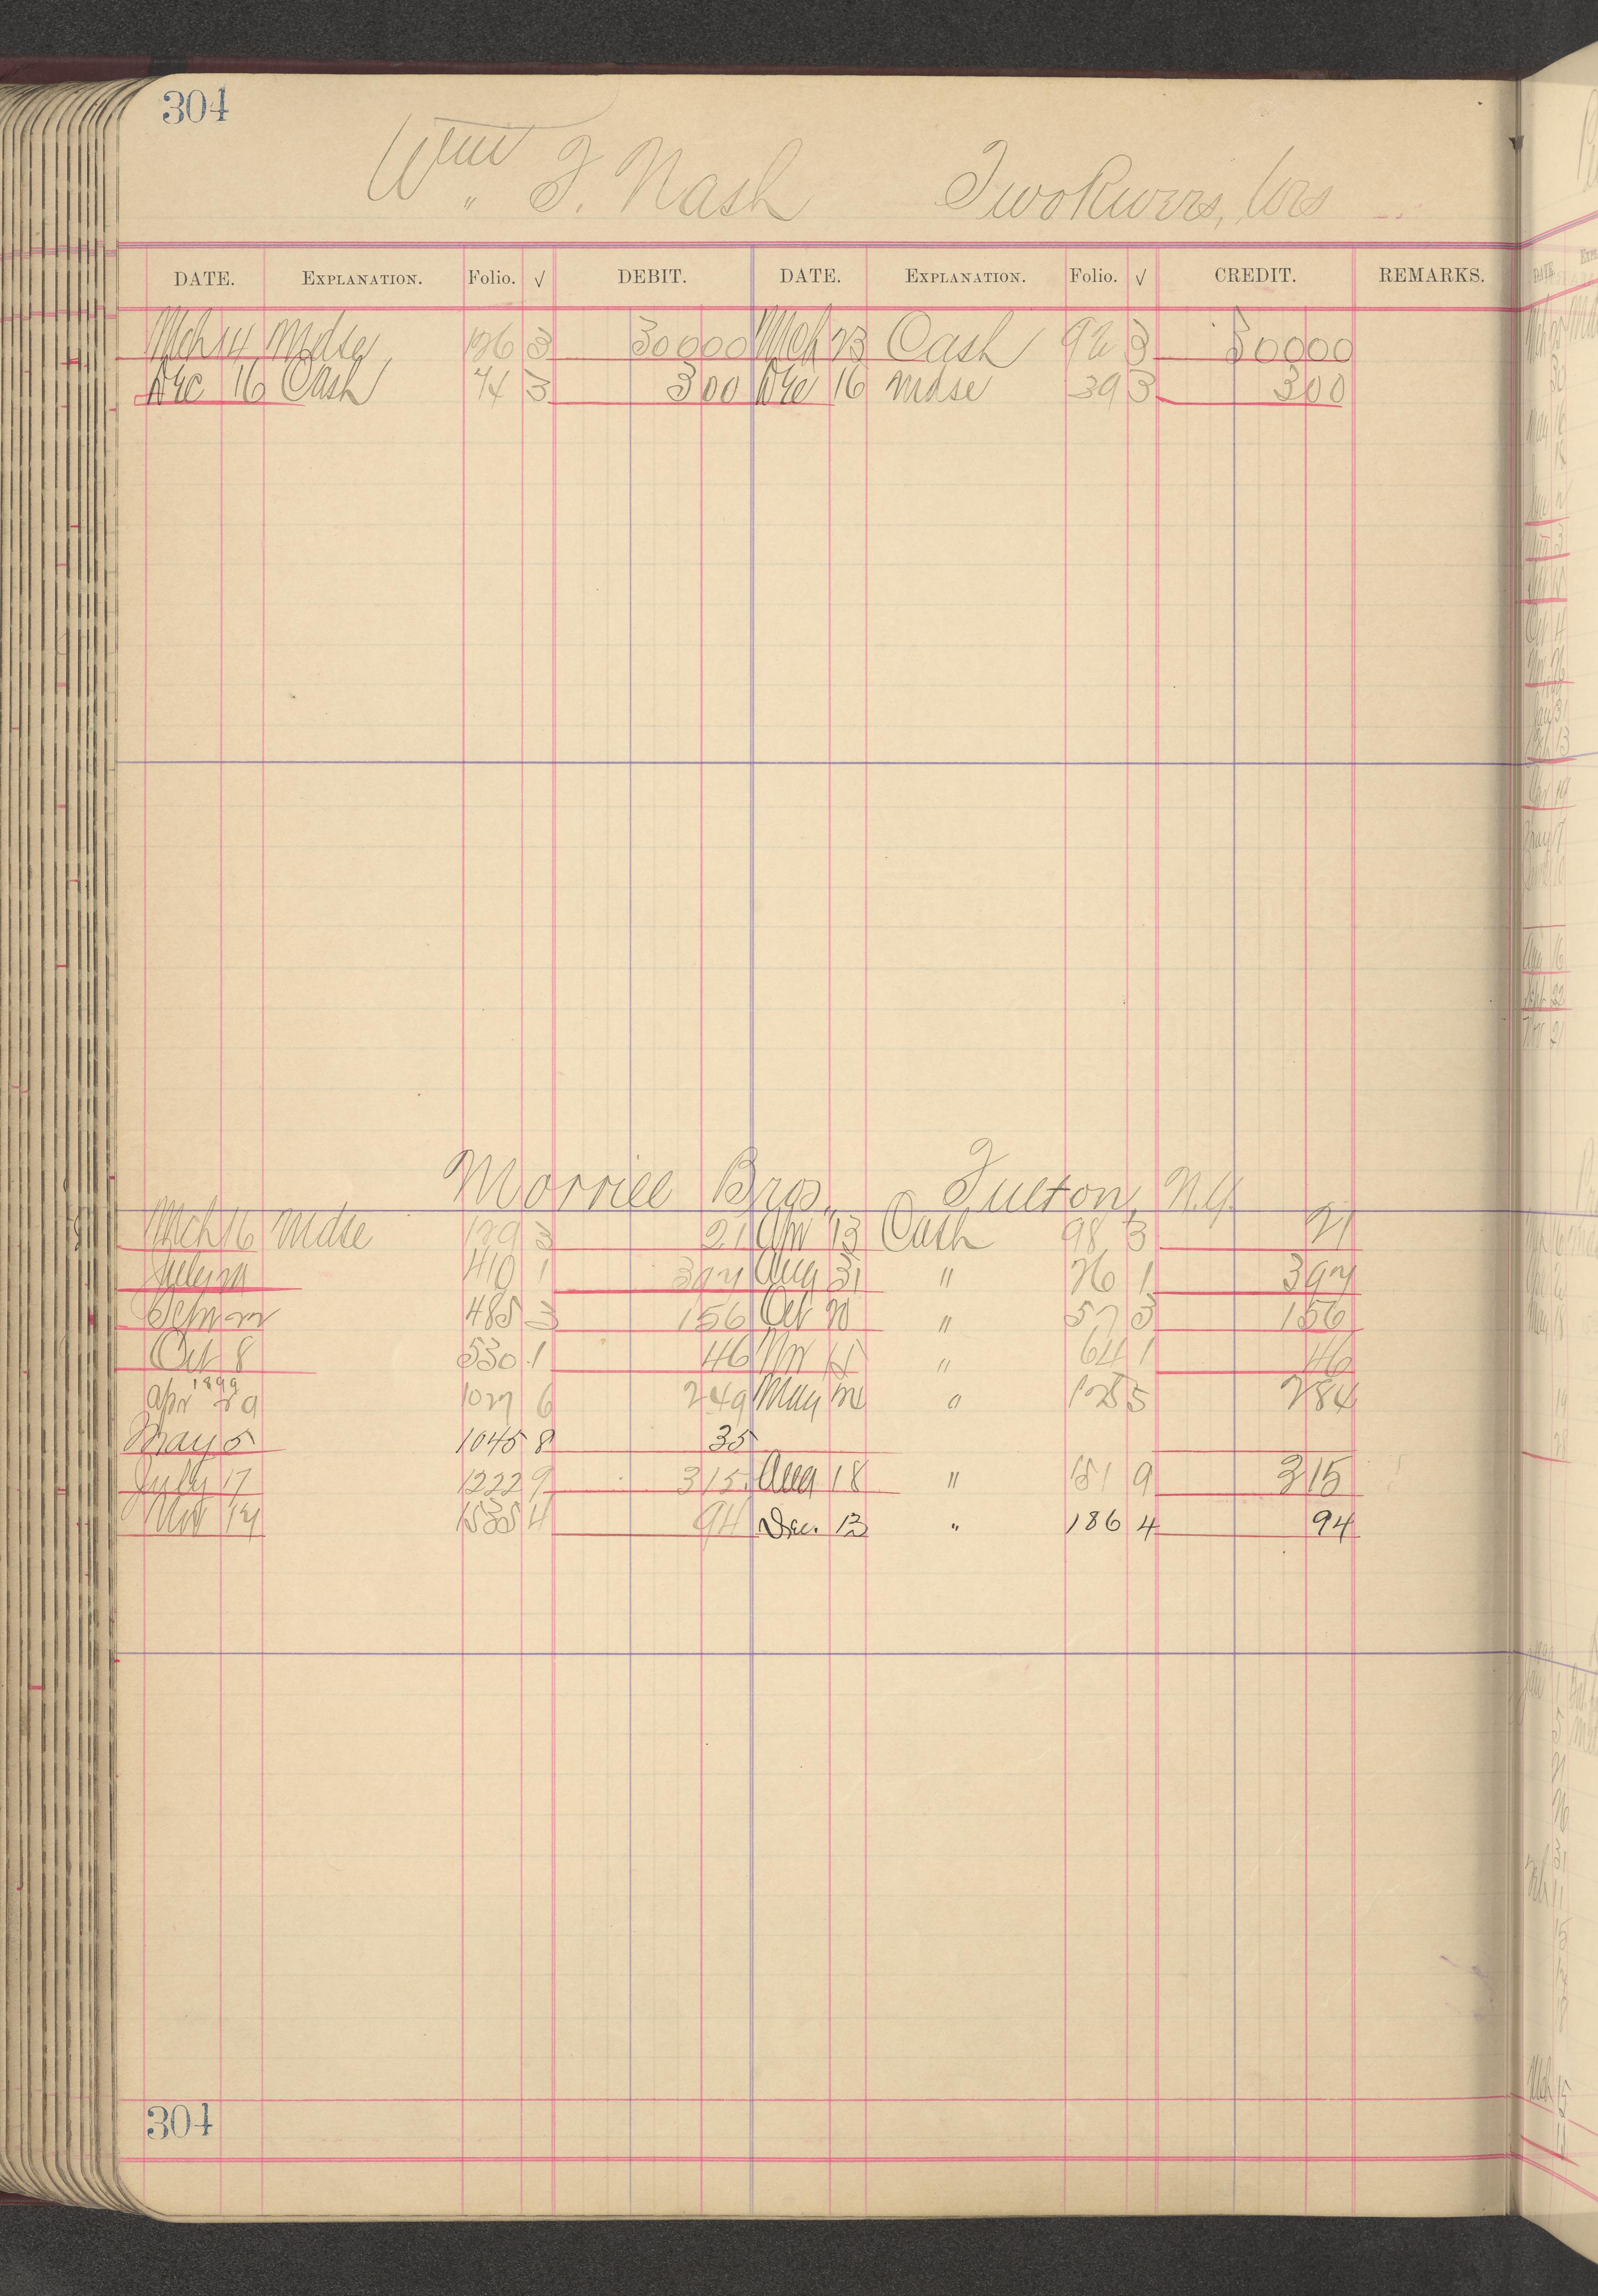 304
Wm. F. Nash Two Rivers, Wis
DATE. EXPLANATION. Folio. √ DEBIT. DATE. EXPLANATION. Folio. √ CREDIT. REMARKS.
Mch 14 Mdse 126 3 300 00 Mch 23 Cash 92 3 300 00
Dec 16 Cash 74 3 3 00 Dec 16 Mdse 39 3 3 00
Morrill Bros. Fulton, N.Y.
Mch 16 Mdse 129 3 21 Apr 13 Cash 98 3 21
July 410 1 3 97 Aug 31 " 26 1 3 97
Sep 22 485 3 1 56 Oct 20 " 57 3 1 56
Oct 8 530 1 46 Nov " 64 1 46
1899
Apr 29 1027 6 2 49 May " 128 5 2 84
May 5 1045 8 35
July 17 1222 9 3 15 Aug 18 " 151 9 3 15
Nov 14 1535 4 94 Dec. 13 " 186 4 94
304